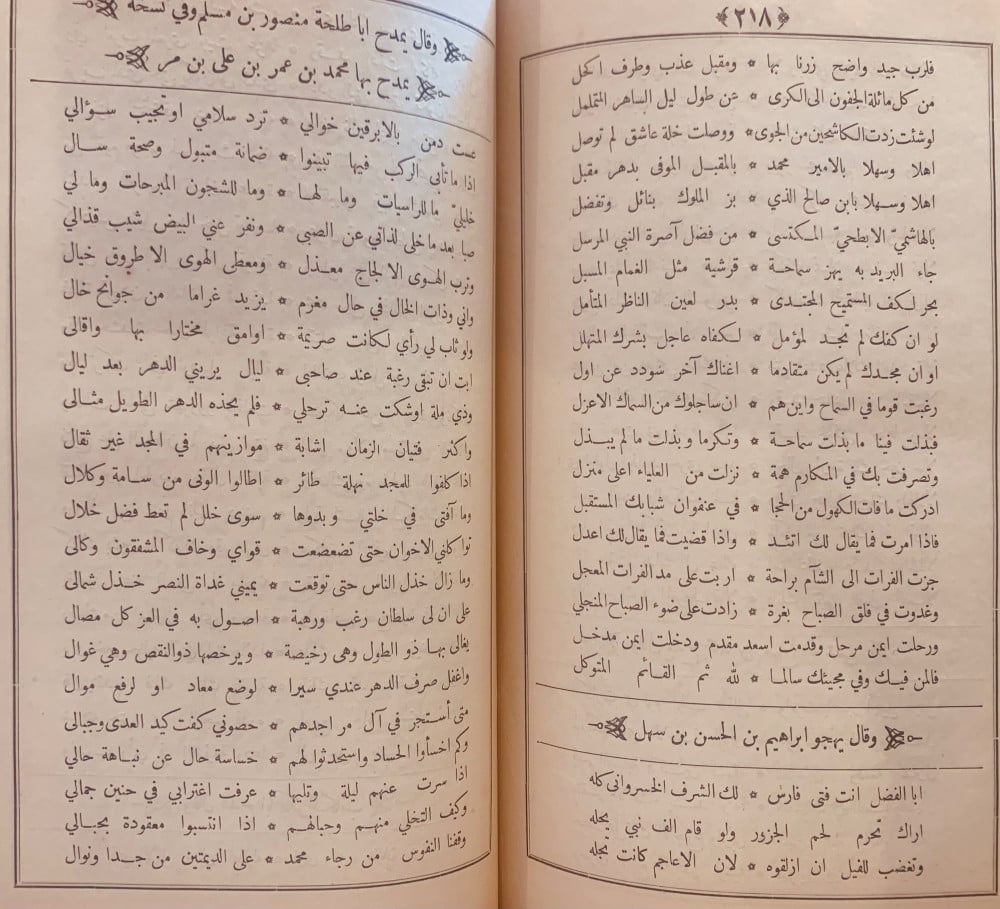 ﴿٢١٨﴾
فلرب جيد واضح زرنا بها * ومقبل عذب وطرف اكحل
من كل ماثلة الجفون الى الكرى * عن طول ليل الساهر المتململ
لوشئت زدت الكاشحين من الجوى * ووصلت خلة عاشق لم توصل
اهلا وسهلا بالامير محمد * بالمقبل الموفى بدهر مقبل
اهلا وسهلا بابن صالح الذي * بز الملوك بنائل وتفضل
بالهاشميّ الابطحيّ المكتسى * من فضل آصرة النبي المرسل
جاء البريد به يهز سماحة * قرشية مثل الغمام المسبل
بحر لكف المستميح المجتدى * بدر لعين الناظر المتأمل
لو ان كفك لم تجد لمؤمل * لكفاه عاجل بشرك المتهلل
او ان مجدك لم يكن متقادما * اغناك آخر سودد عن اول
رغبت قوما في السماح واين هم * ان ساجلوك من السماك الاعزل
فبذلت فينا ما بذلت سماحة * وتكرما وبذلت ما لم يبذل
وتصرفت بك في المكارم همة * نزلت من العلياء اعلى منزل
ادركت ما فات الكهول من الحجا * في عنفوان شبابك المستقبل
فاذا امرت فما يقال لك اتئد * واذا قضيت فما يقال لك اعدل
جزت الفرات الى الشآم براحة * اربت على مد الفرات المعجل
وغدوت في فلق الصباح بغرة * زادت على ضوء الصباح المنجلي
ورحلت ايمن مرحل وقدمت اسعد مقدم ودخلت ايمن مدخل
فالمن فيك وفي مجيئك سالما * لله ثم القائم المتوكل
وقال يهجو ابراهيم بن الحسن بن سهل
ابا الفضل انت فتى فارس * لك الشرف الخسروانى كله
اراك تحرم لحم الجزور ولو قام الف نبي يحله
وتغضب للفيل ان ازلقوه * لان الاعاجم كانت تجله
وقال يمدح ابا طلحة منصور بن مسلم وفي نسخة
يمدح بها محمد بن عمر بن على بن مر
عست دمن بالابرقين خوالي * ترد سلامي او تجيب سؤالي
اذا ما تأبى الركب فيها تبينوا * ضمانة متبول وصحة سال
خليليّ ما للراسيات وما لها * وما للشجون المبرحات وما لي
صبا بعد ما خلى لذاتي عن الصبى * ونفر عني البيض شيب قذالي
وترب الهوى الا لجاج معذل * ومعطى الهوى الا طروق خيال
واني وذات الخال في حال مغرم * يزيد غراما من جوانح خال
ولو ثاب لي رأي لكانت صريمة * اوامق مختارا بها واقالى
ابت ان تبقى رغبة عند صاحبى * ليال يريني الدهر بعد ليال
وذي ملة اوشكت عنه ترحلي * فلم يحذه الدهر الطويل مثالى
واكثر فتيان الزمان اشابة * موازينهم في المجد غير ثقال
اذا كلفوا للمجد نهلة طائر * اطالوا الونى من سامة وكلال
وما آفتى في خلتي وبدوها * سوى خلل لم تعط فضل خلال
تواكلني الاخوان حتى تضعضعت * قواي وخاف المشفقون وكالى
وما زال خذل الناس حتى توقعت * يميني غداة النصر خذل شمالى
على ان لى سلطان رغب ورهبة * اصول به في العز كل مصال
يغالى بها ذو الطول وهى رخيصة * ويرخصها ذوالنقص وهي غوال
واغفل صرف الدهر عندي سيرا * لوضع معاد او لرفع موال
متى أستجر في آل مر اجدهم * حصوني كفت كيد العدى وجبالى
وكم اخسأوا الحساد واستحدثوا لهم * خساسة حال عن نباهة حالي
اذا سرت عنهم ليلة وتليها * عرفت اغترابي في حنين جمالي
وكيف التخلي منهم وحبالهم * اذا انتسبوا معقودة بحبالي
وقفنا النفوس من رجاء محمد * على الديمتين من جدا ونوال